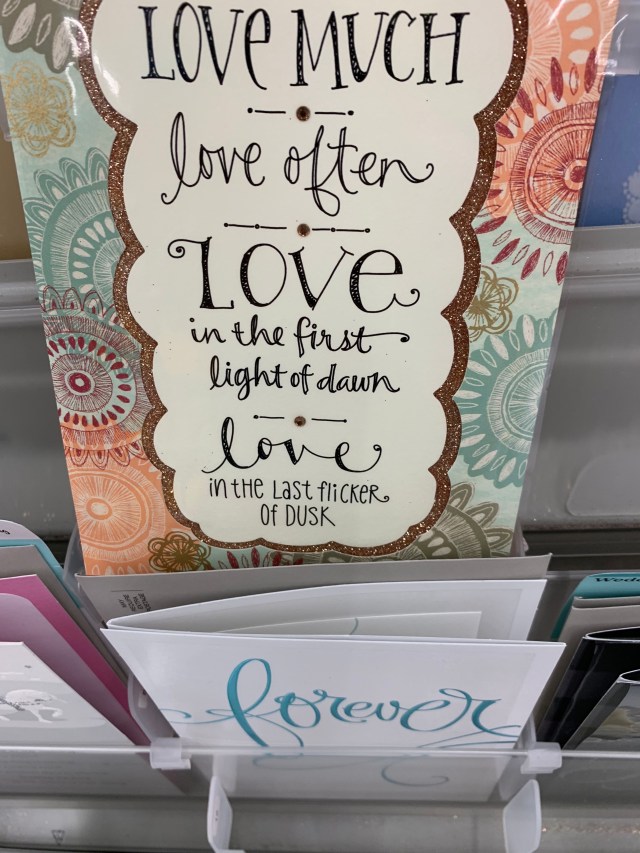 LOVE MUCH
love often
LOVE
in the first
light of dawn
love
in the Last flicker
of DUSK
forever